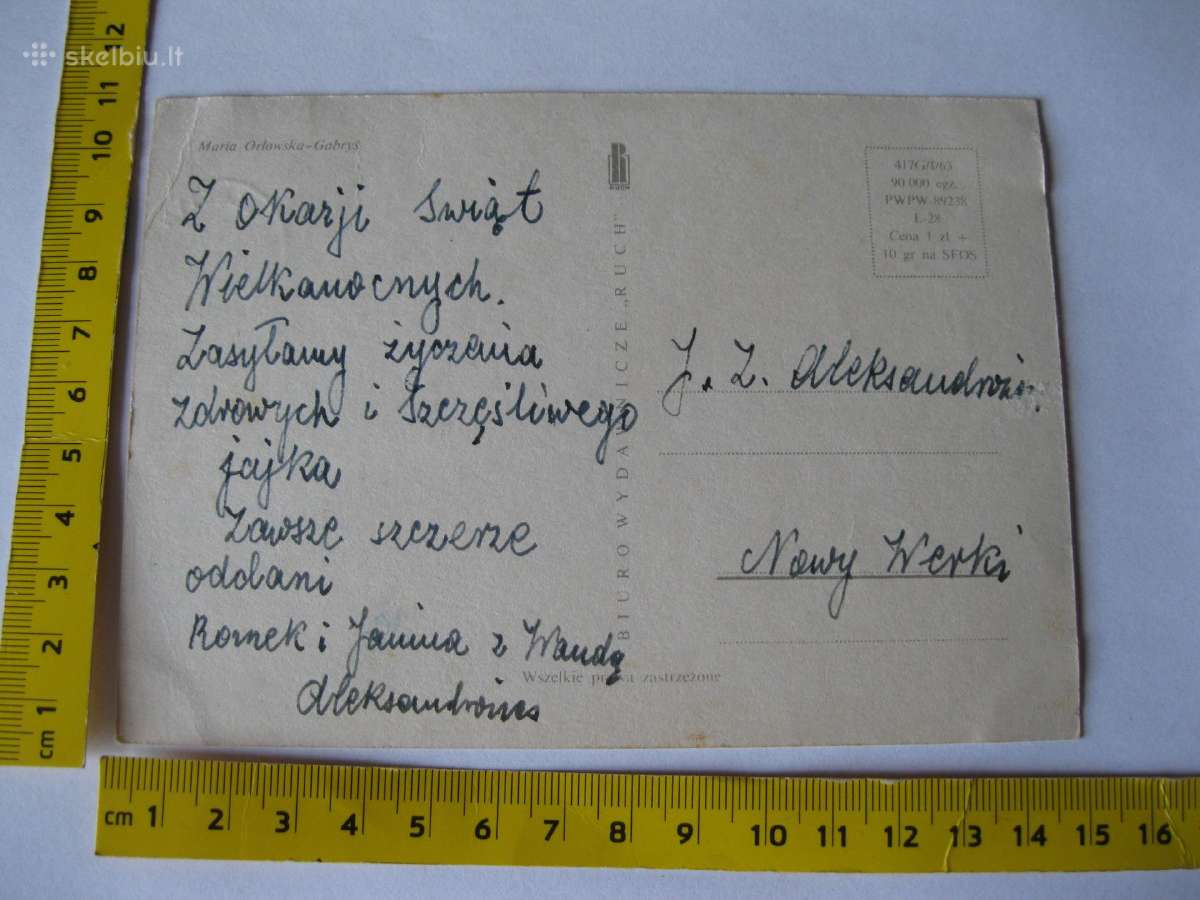 skelbiu.lt
Maria Orłowska-Gabryś
Z okazji Swiąt
Wielkanocnych.
Zasyłamy życzenia
zdrowych i Szczęśliwego
jajka
Zawsze szczerze
oddani
Romek i Janina z Wandą
RUCH
BIURO WYDAWNICZE „RUCH”
417G/I/63
90 000 egz.
PWPW 89238
L-28
Cena 1 zł +
10 gr na SFOS
J. Z.
Nowy Werki
Wszelkie prawa zastrzeżone
cm 1 2 3 4 5 6 7 8 9 10 11 12
cm 1 2 3 4 5 6 7 8 9 10 11 12 13 14 15 16